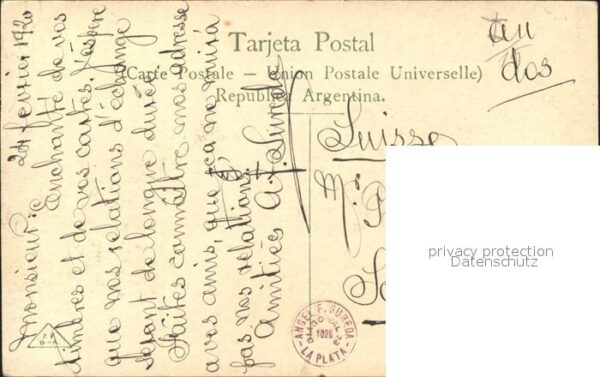 au
dos
Tarjeta Postal
(Carte Postale — Union Postale Universelle)
Republica Argentina.
24 février 1920
Monsieur:
Enchanté de vos
timbres et de vos cartes. J'espère
que nos relations d'échange
seront de longue durée.
Faites connaître mon adresse
a vos amis, que ça ne nuira
pas nos relations.
Amitiés A. F. Sureda
Suisse
Mr.
privacy protection
Datenschutz
ANGEL F. SUREDA
1026
LA PLATA